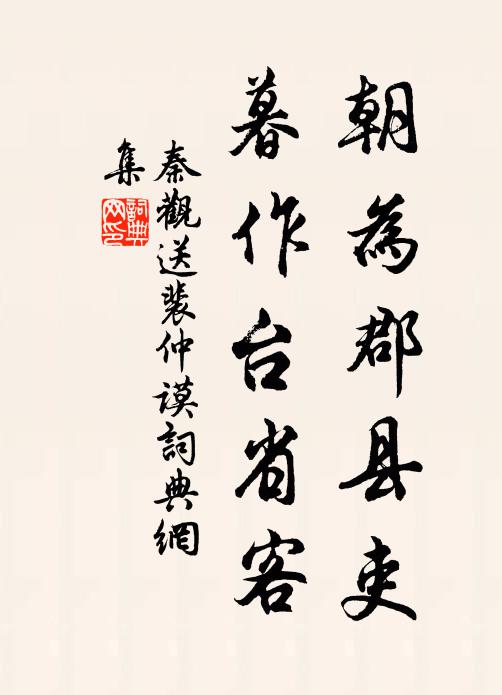 朝為郡县吏
暮作台省客
秦觀送裴仲謨詞典網
集
詞典
网印